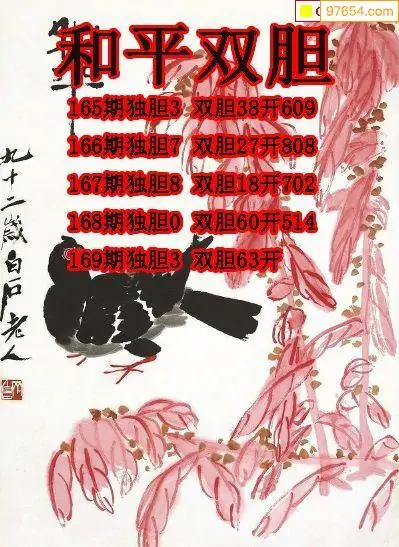 97654.com
和平双胆
165期独胆3 双胆38开609
166期独胆7 双胆27开808
167期独胆8 双胆18开702
168期独胆0 双胆60开514
169期独胆3 双胆63开
九十二岁白石老人